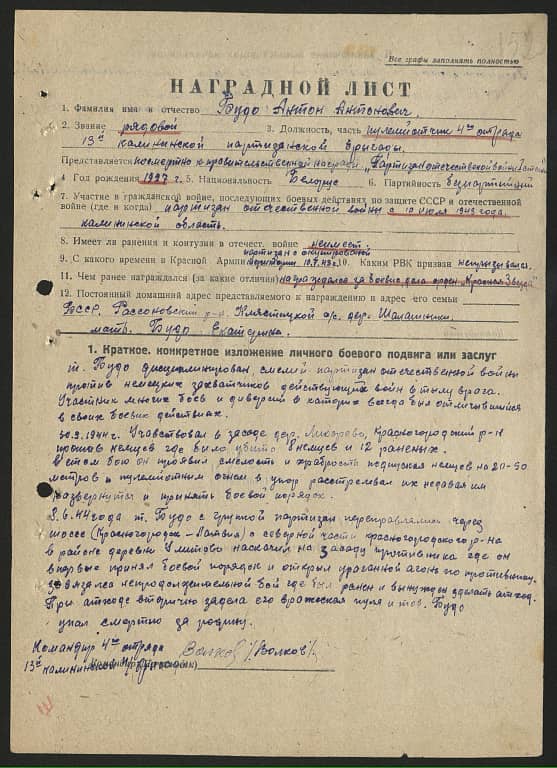 152
Все графы заполнять полностью
НАГРАДНОЙ ЛИСТ
1. Фамилия имя и отчество Будо Антон Антонович
2. Звание рядовой 3. Должность, часть пулеметчик 4го отряда
13й калининской партизанской бригады.
Представляется посмертно к правительственной награде "Партизан отечественной войны
4 Год рождения 1927 г. 5. Национальность Белорус 6. Партийность безпартийный
7. Участие в гражданской войне, последующих боевых действиях по защите СССР и отечественной
войне (где и когда) партизан отечественной войны с 10 июля 1943 года.
калининская область.
8. Имеет ли ранения и контузии в отечест. войне неимеет.
партизан с окупированой
9. С какого времени в Красной Армии территории 10.7.43г. 10. Каким РВК призван непризывался
11. Чем ранее награждался (за какие отличия) награждался за боевые дела орден "Красная Звезда"
12. Постоянный домашний адрес представляемого к награждению и адрес его семьи
БССР. Россоновский р-н. Клястицкой с/с. дер. Шалашники.
мать. Будо Екатерина.
1. Краткое, конкретное изложение личного боевого подвига или заслуг
т. Будо дисциплинирован, смелый партизан отечественной войны
против немецких захватчиков действующих войн в тылу врага.
Участник многих боев и диверсий в которых всегда был отличившийся
в своих боевых действиях.
1944 г. Учавствовал в засаде дер. Красногородский р-н
против немцев где было убито 8 немцев и 12 раненых.
В етом бою он проявил смелость и храбрость подпуская немцев на
метров и пулеметным огнем в упор расстреливал их недавая им
развернуться и принять боевой порядок.
8.6.44 года т. Будо с группой партизан переправляясь через
шоссе (Красногородск - Латвия) с северной части красногородского р-на
в районе деревни наскочил на засаду противника где он
впервые принял боевой порядок и открыл ураганой агонь по противнику.
завязался непродолжительной бой где был ранен и вынужден зделать отход.
При отходе вторично задела его вражеская пуля и тов. Будо
упал смертью за родину.
Командир 4го отряда
13й калининской Волков /Волков/